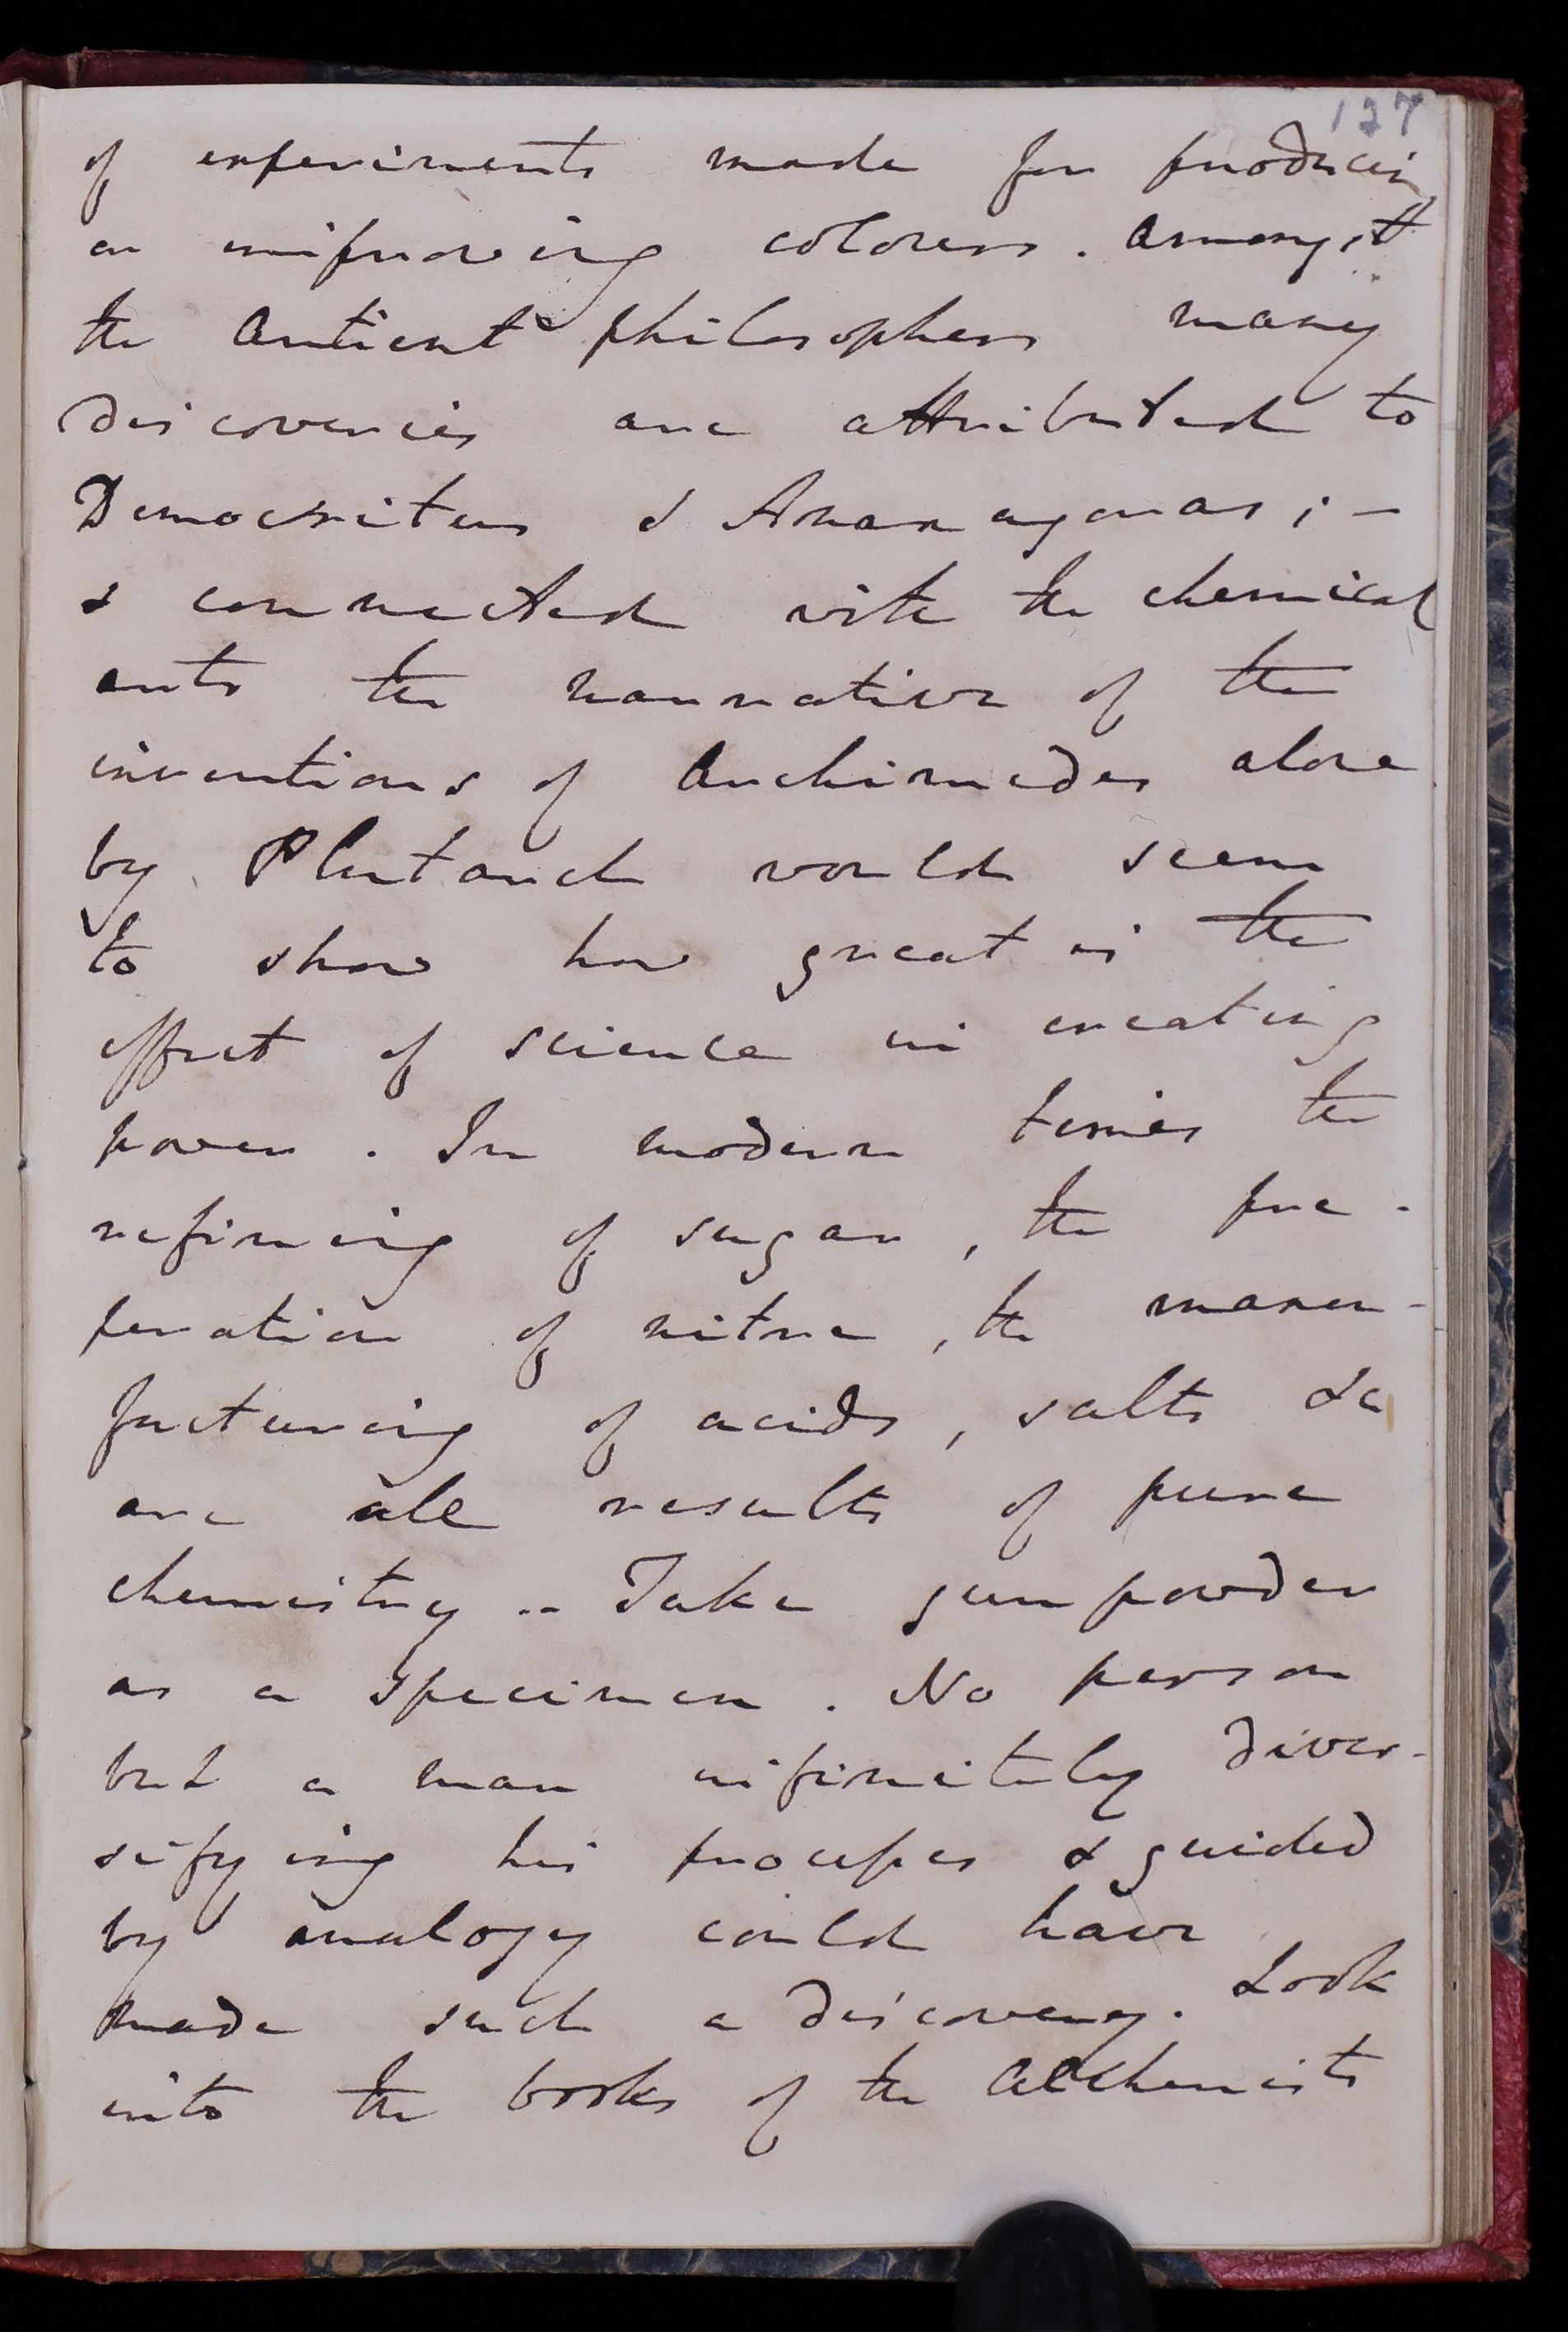 127
of experiments made for producing
or improving colours. Amongst
the Antient philosophers many
discoveries are attributed to
Democritus & Anaxagoras; -
& connected with the chemical
arts the narrative of the
inventions of Archimedes alone
by Plutarch would seem
to show how great is the
effect of science in creating
power. In modern times the
refining of sugar, the pre-
peration of nitre, the manu-
facturing of acids, salts &c
are all results of pure
chemistry .. Take gunpowder
as a specimen. No person
but a man infinitely diver-
sifying his processes & guided
by analogy could have
made such a discovery. Look
into the books of the Alchemists